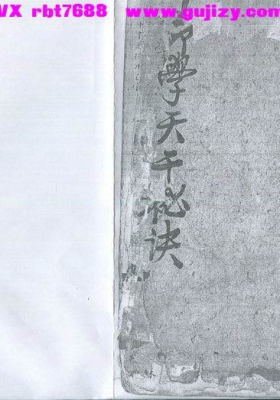 VX rbt7688    www.gujizy.com
學天干秘诀